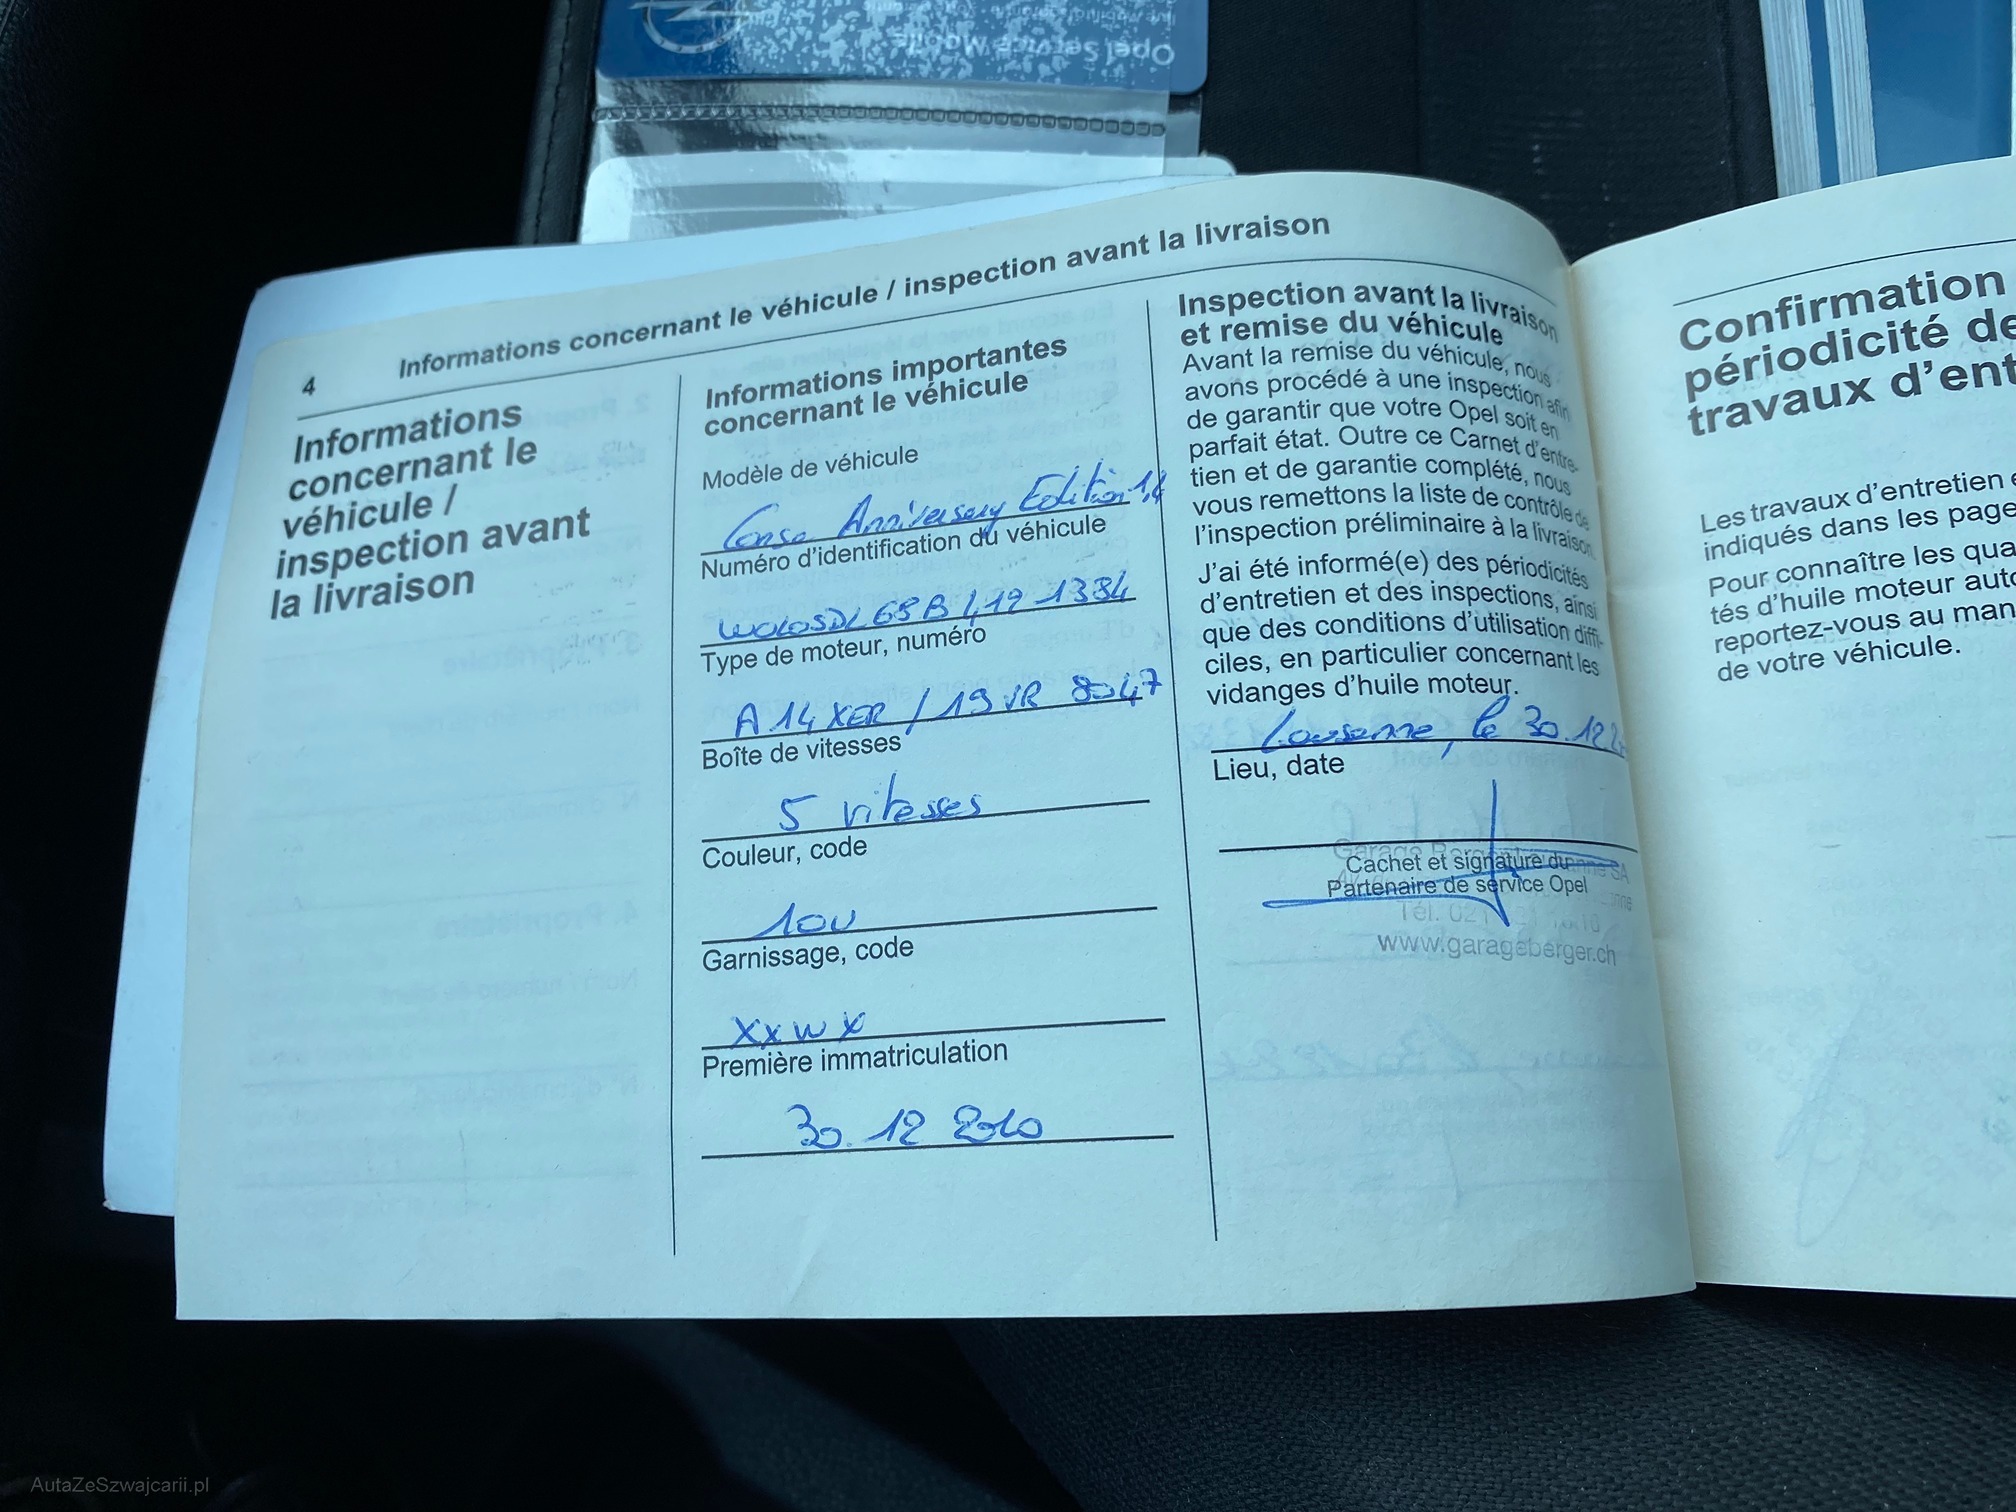 Opel Service Mobile
4
Informations concernant le véhicule / inspection avant la livraison
Informations
concernant le
véhicule /
inspection avant
la livraison
Informations importantes
concernant le véhicule
Modèle de véhicule
Corsa Anniversary Edition 1,4
Numéro d'identification du véhicule
Type de moteur, numéro
A 14 XER / 19 VR 8047
Boîte de vitesses
5 vitesses
Couleur, code
10U
Garnissage, code
XXWX
Première immatriculation
30.12 2010
Inspection avant la livraison
et remise du véhicule
Avant la remise du véhicule, nous
avons procédé à une inspection afin
de garantir que votre Opel soit en
parfait état. Outre ce Carnet d'entre-
tien et de garantie complété, nous
vous remettons la liste de contrôle de
l'inspection préliminaire à la livraison.
J'ai été informé(e) des périodicités
d'entretien et des inspections, ainsi
que des conditions d'utilisation diffi-
ciles, en particulier concernant les
vidanges d'huile moteur.
Lausanne, le 30.12
Lieu, date
Garage
Cachet et signature du
Partenaire de service Opel
Tél. 021
www.garageberger.ch
Confirmation
périodicité de
travaux d'ent
Les travaux d'entretien
indiqués dans les page
Pour connaître les qua
tés d'huile moteur auto
reportez-vous au man
de votre véhicule.
AutaZeSzwajcarii.pl